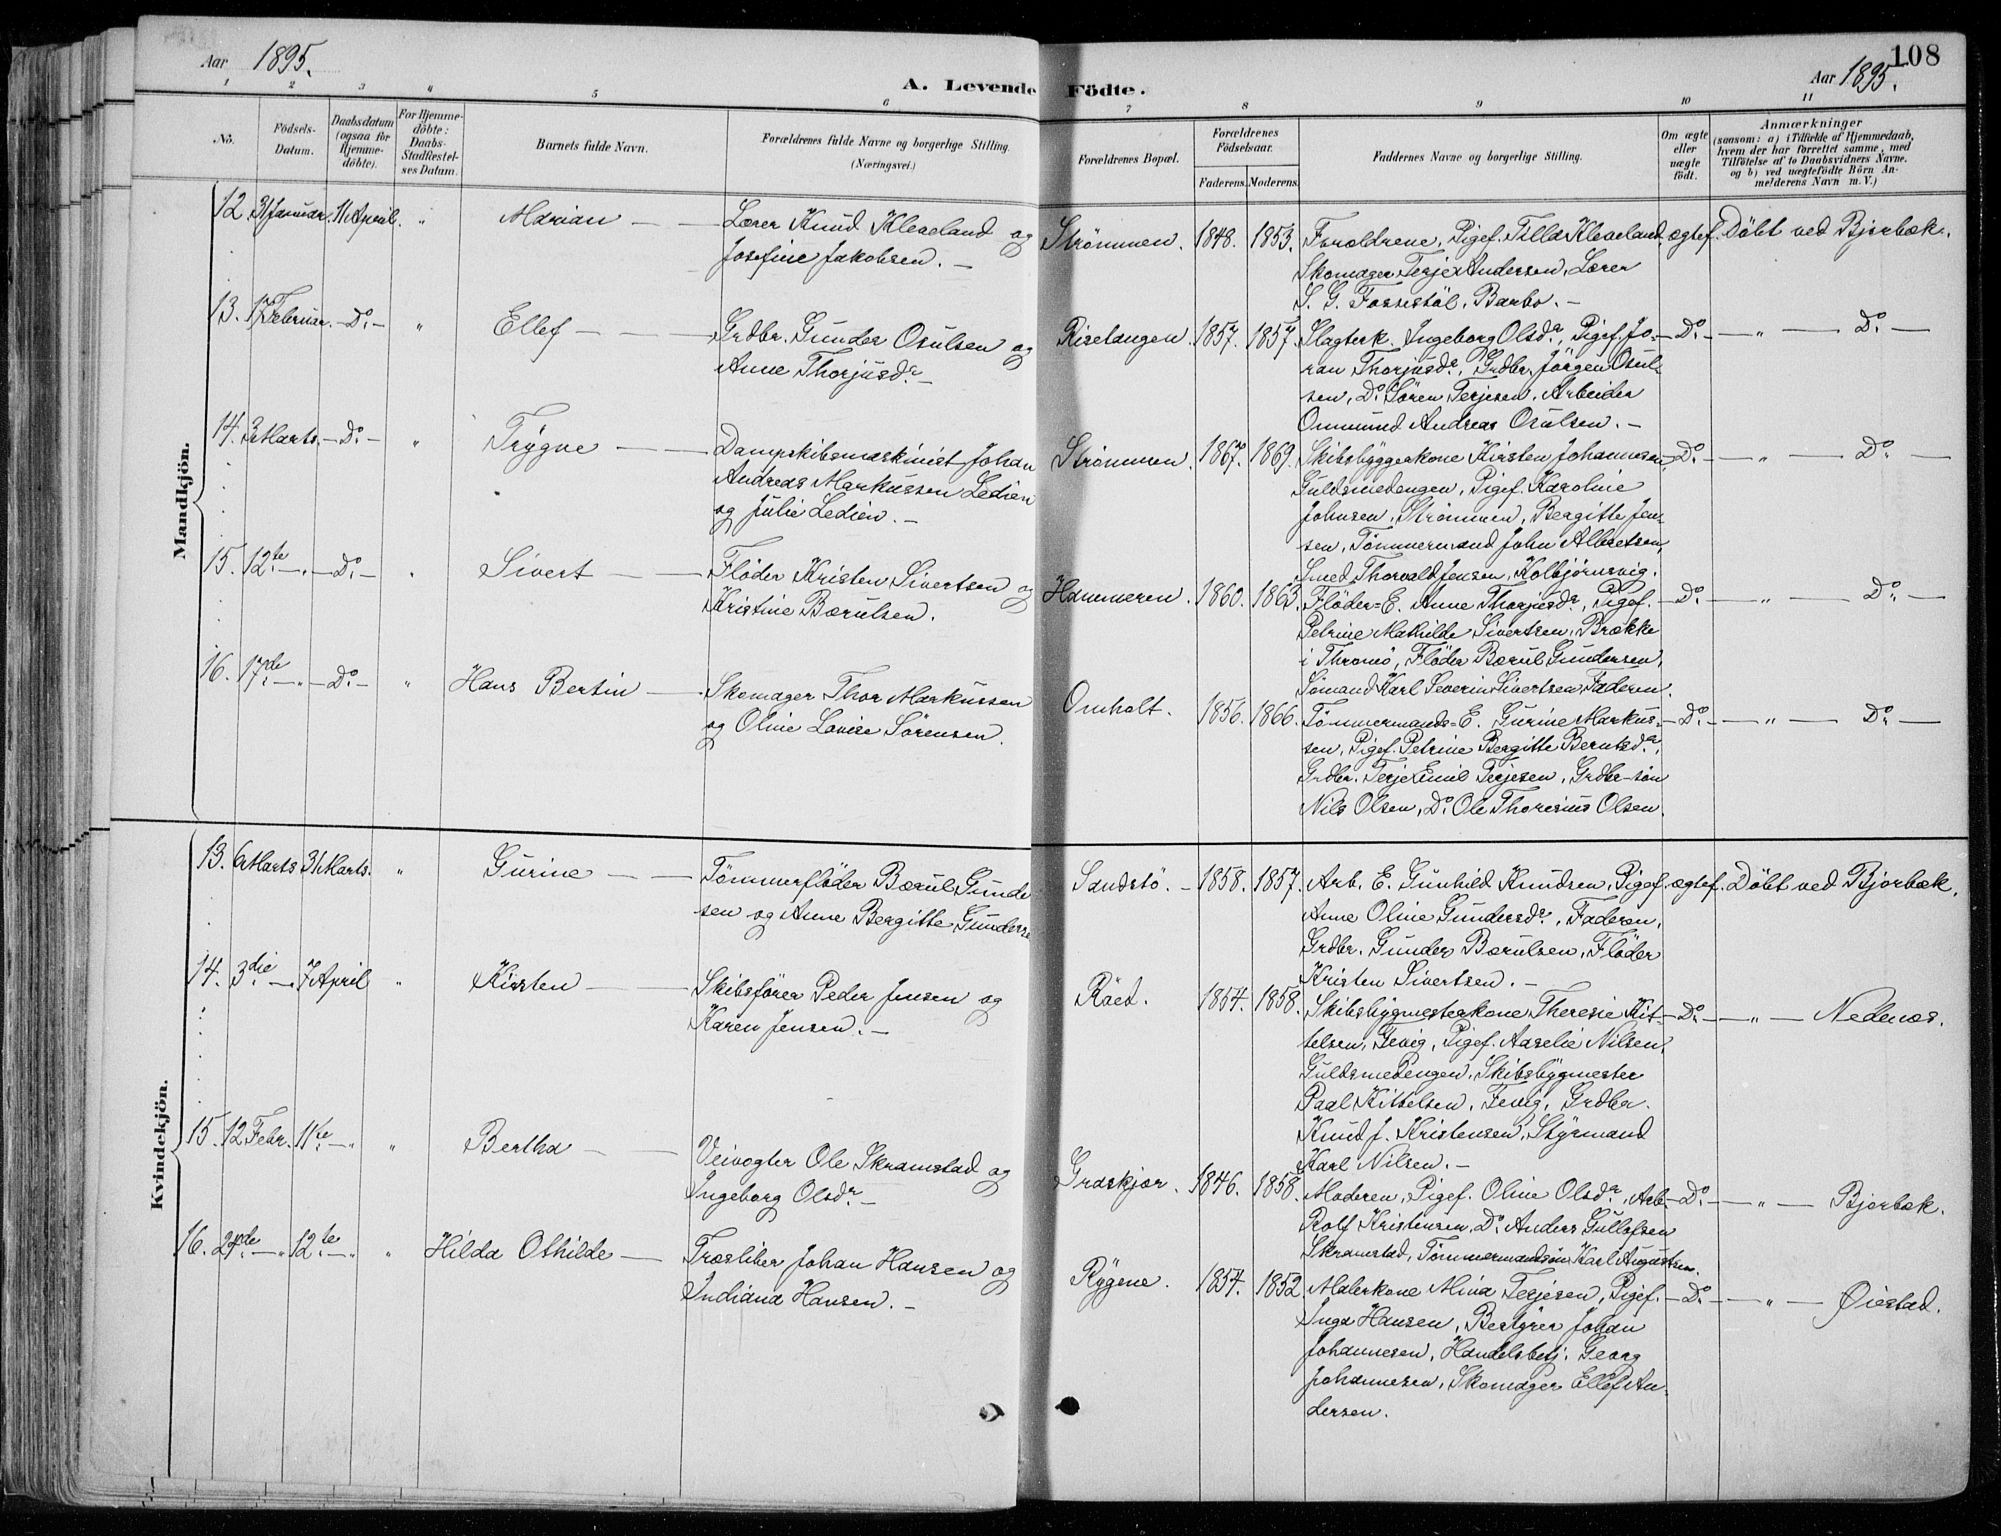 Aar 1895.
A. Levende Fødte.
108
Aar 1895.
1 2 3 4 5 6 7 8 9 10 11
No.
Fødsels-Datum.
Daabsdatum (ogsaa for Hjemmedøbte).
For Hjemmedøbte: Daabs-Stadfæstelses Datum.
Barnets fulde Navn.
Forældrenes fulde Navne og borgerlige Stilling. (Næringsvei.)
Forældrenes Bopæl.
Forældrenes Fødselsaar.
Faderens. Moderens.
Faddernes Navne og borgerlige Stilling.
Om ægte eller uægte født.
Anmærkninger
(saasom: a) i Tilfælde af Hjemmedaab, hvem der har forrettet samme, med Tilføielse af to Daabsvidners Navne. og b) ved uægtefødte Børn Anmelderens Navn m. V.)
Mandkjøn.
12. 31 Januar. 11 April. " Marian — Lærer Knud Kleveland og
Josefine Jakobsen. —
Strømmen. 1848. 1853. Forældrene, Pigef. Tilla Kleveland
Skomager Terje Andersen, Lærer
S. G. Fossestøl, Barbo. —
ægtef. Døbt ved Bjorbæk.
13. 17 Februar. — Do. — " Ellef — Grdbr. Gunder Osulsen og
Anne Thorjusdr. —
Riselangen. 1857. 1857. Slagterk. Ingeborg Olsdr., Pigef. Jo-
ran Thorjusdr., Grdbr. Jørgen Osul-
sen, Do. Søren Terjesen, Arbeider
Ommund Andreas Osulsen. —
— Do. — " — Do. —
14. 3 Marts. — Do. — " Trygve — Dampskibsmaskinist Johan
Andreas Markussen Ledien
og Julie Ledien. —
Strømmen. 1867. 1869. Skibsbyggerkone Kirsten Johannesen
Guldsmedengen, Pigef. Karoline
Johnsen, Strømmen, Bergitte Jen-
sen, Tømmermand John Albretsen,
Smed Thorvald Jensen, Kolbjørnsvig.
— Do. — " — Do. —
15. 12te — " — Do. — " Sivert — Fløder Kristen Sivertsen og
Kristine Børulsen.
1860. 1863. Fløder-E. Anne Thorjusdr., Pigef.
Petrine Mathilde Sivertsen, Brække
i Thromø, Fløder Børul Gundersen,
Sømand Karl Severin Sivertsen, Faderen.
— Do. — " — Do. —
16. 17de — " — Do. — " Hans Bertin — Skomager Thor Markussen
og Oline Lovise Sørensen.
Omholt. 1856. 1866. Tømmermands-E. Gurine Markus-
sen, Pigef. Petrine Bergitte Berntsdr.,
Grdbr. Terje Emil Terjesen, Grdbr-søn
Nils Olsen, Do. Ole Thoresius Olsen.
— Do. — " — Do. —
Kvindekjøn.
13. 6 Marts 31 Marts. " Gurine — Tømmerfløder Børul Gunder
sen og Anne Bergitte Gunderse
Sandstø. — 1858. 1857. Arb. E. Gunhild Knudsen, Pigef.
Anne Oline Gundersdr., Faderen,
Grdbr. Gunder Børulsen, Fløder
Kristen Sivertsen. —
ægtef. Døbt ved Bjorbæk.
14. 3die — 7 April " Kirsten — Skibsfører Peder Jensen og
Karen Jensen. —
Røed. 1854. 1858. Skibsbygmesterkone Theresie Kit-
telsen, Fevig, Pigef. Aaselie Nilsen,
Guldsmedengen, Skibsbygmester
Paal Kittelsen, Fevig, Grdbr.
Knud J. Kristensen, Styrmand
Karl Nilsen. —
— Do. — " — Nedenæs.
15. 12 Febr. 11te — " " Bertha — Veivogter Ole Skramstad og
Ingeborg Olsdr. —
Græskjær. 1846. 1858. Moderen, Pigef. Oline Olsdr., Arb.
Rolf Kristensen, Do. Anders Gullofsen
Skramstad, Tømmermandsøn Karl Augustsen.
— Do. — " — Bjorbæk.
16. 24de — " 12te — " " Hilda Othilde — Træsliber Johan Hansen og
Indiana Hansen. —
Rygene. 1854. 1852. Malerkone Mina Terjesen, Pigef.
Inga Hansen, Bestyrer Johan
Johannesen, Handelsbetj. Georg
Johannesen, Skomager Ellef An-
dersen.
— Do. — " — Øiestad.